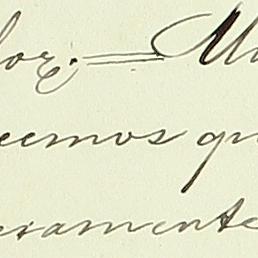 lor. — Ma
eemos qu
eramente